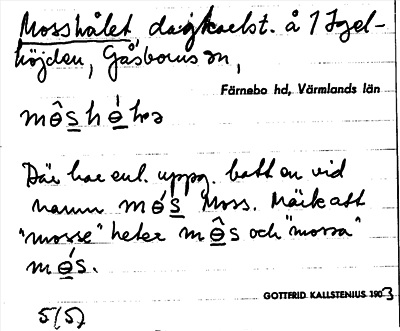 Mosshålet, dagkaelst. å 1 Igel-
höjden, Gåsborns sn,
Färnebo hd, Värmlands län
Där har enl. uppg. bott en vid
namn Moss. Märk att
"mosse" heter och "mossa"
GOTTFRID KALLSTENIUS 1903
5/5)